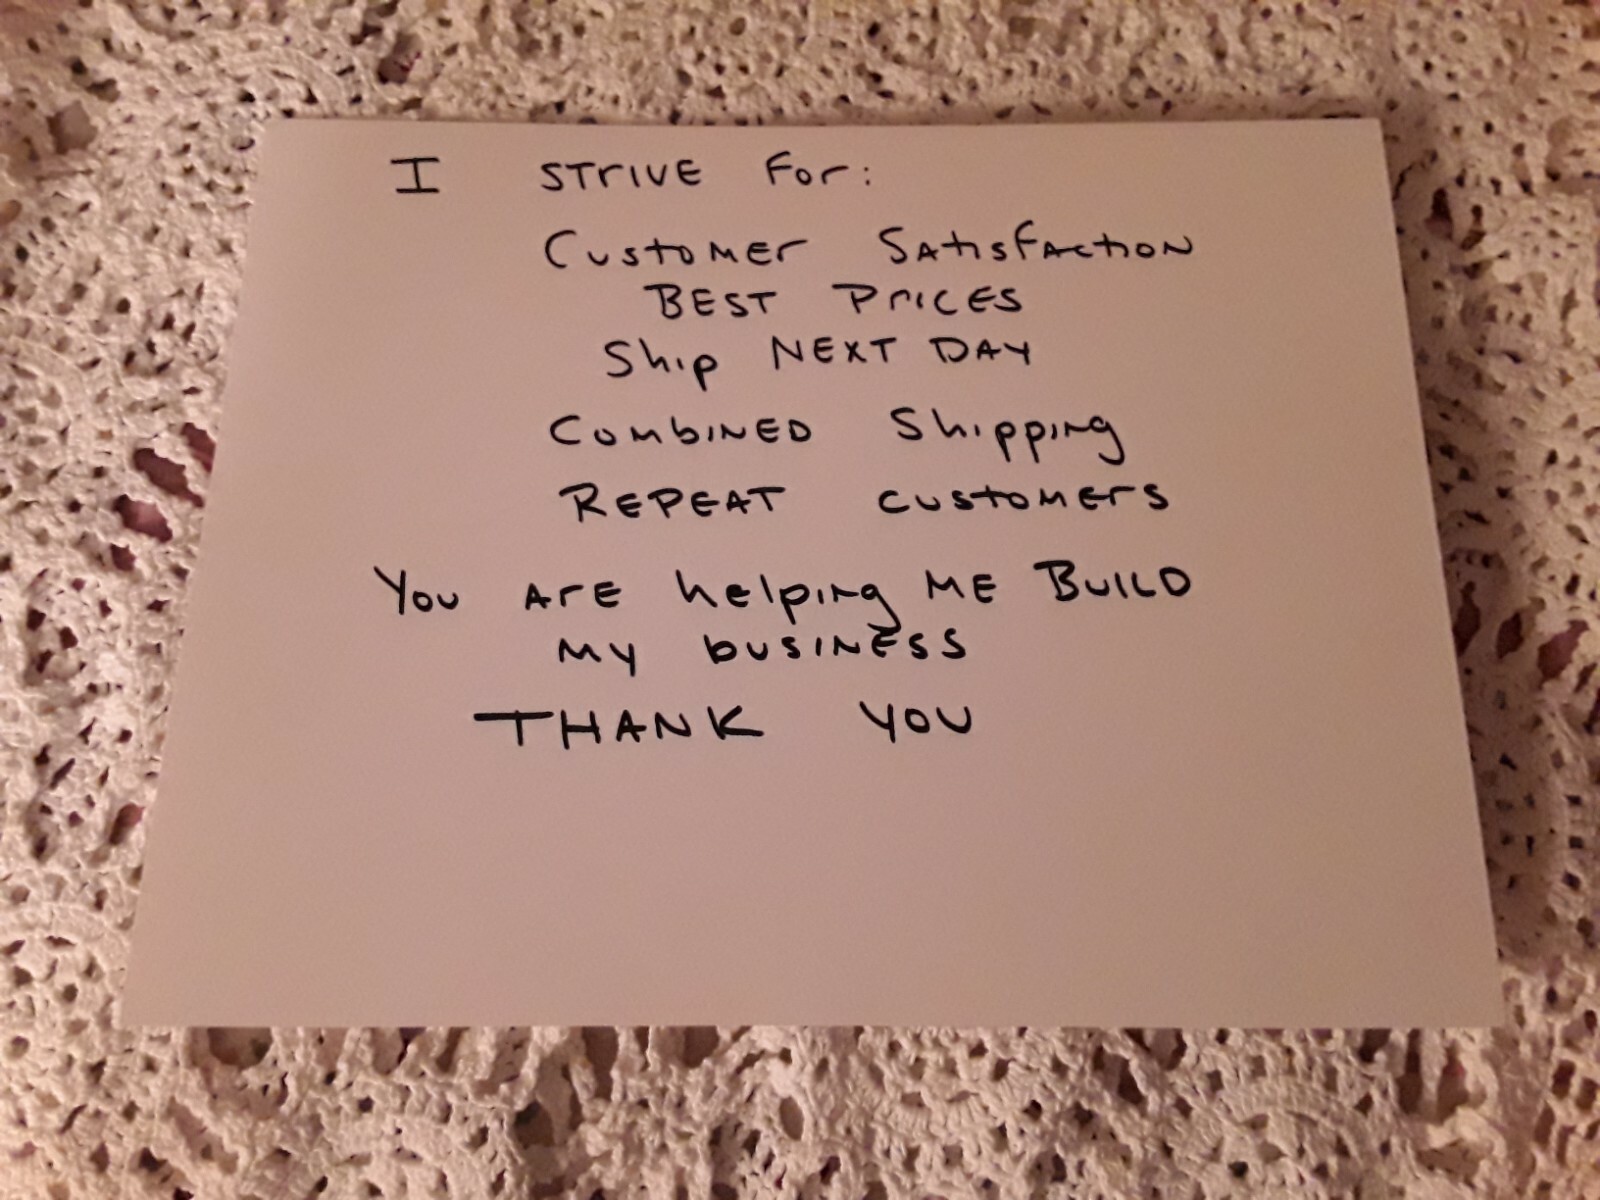 I STRIVE FOR:
Customer Satisfaction
BEST PRICES
Ship NEXT DAY
COMBINED Shipping
REPEAT CUSTOMERS
You ARE helping ME BUILD
MY BUSINESS
THANK YOU